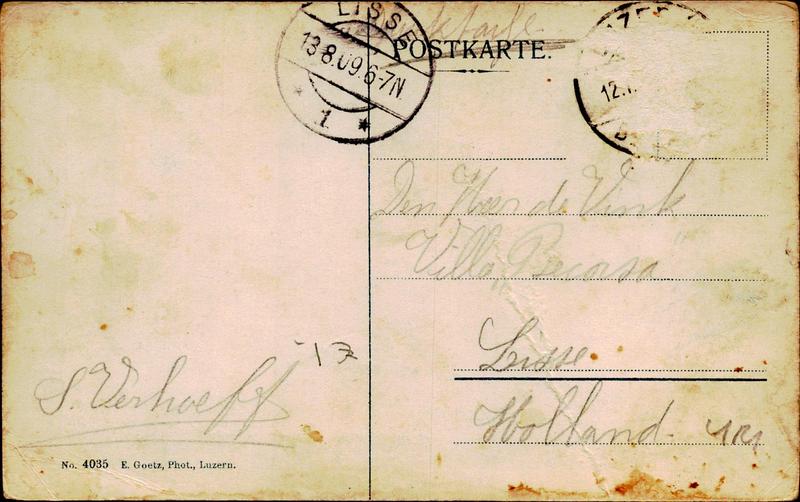 LISSE
13.8.09.6-7N.
1
POSTKARTE.
12.
Den Heer de Vink
Villa
Lisse
Holland
S. Verhoeff
No. 4035 E. Goetz, Phot., Luzern.